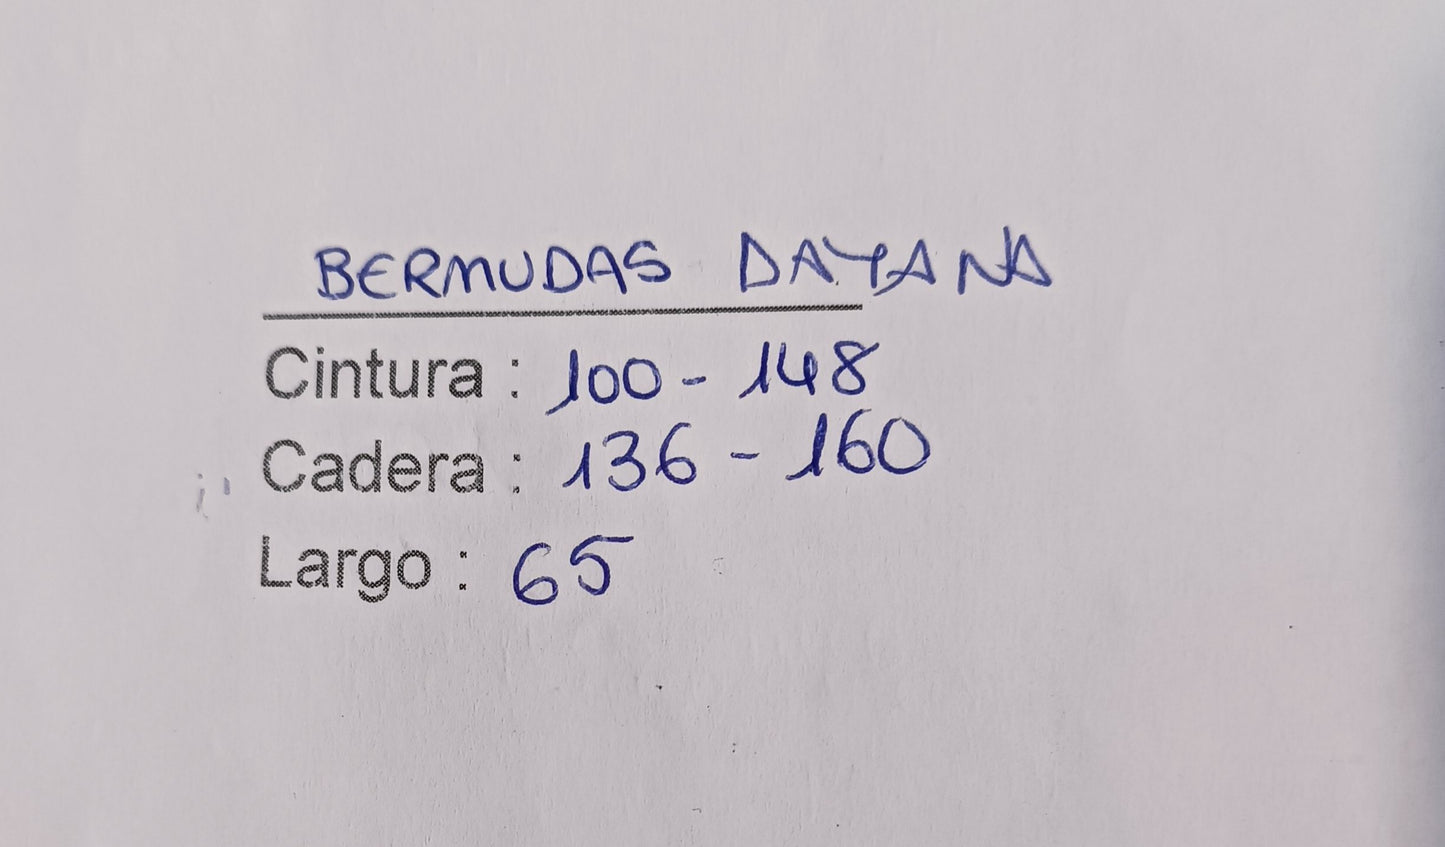 BERMUDAS DAYANA
Cintura : 100 - 148
Cadera : 136 - 160
Largo : 65